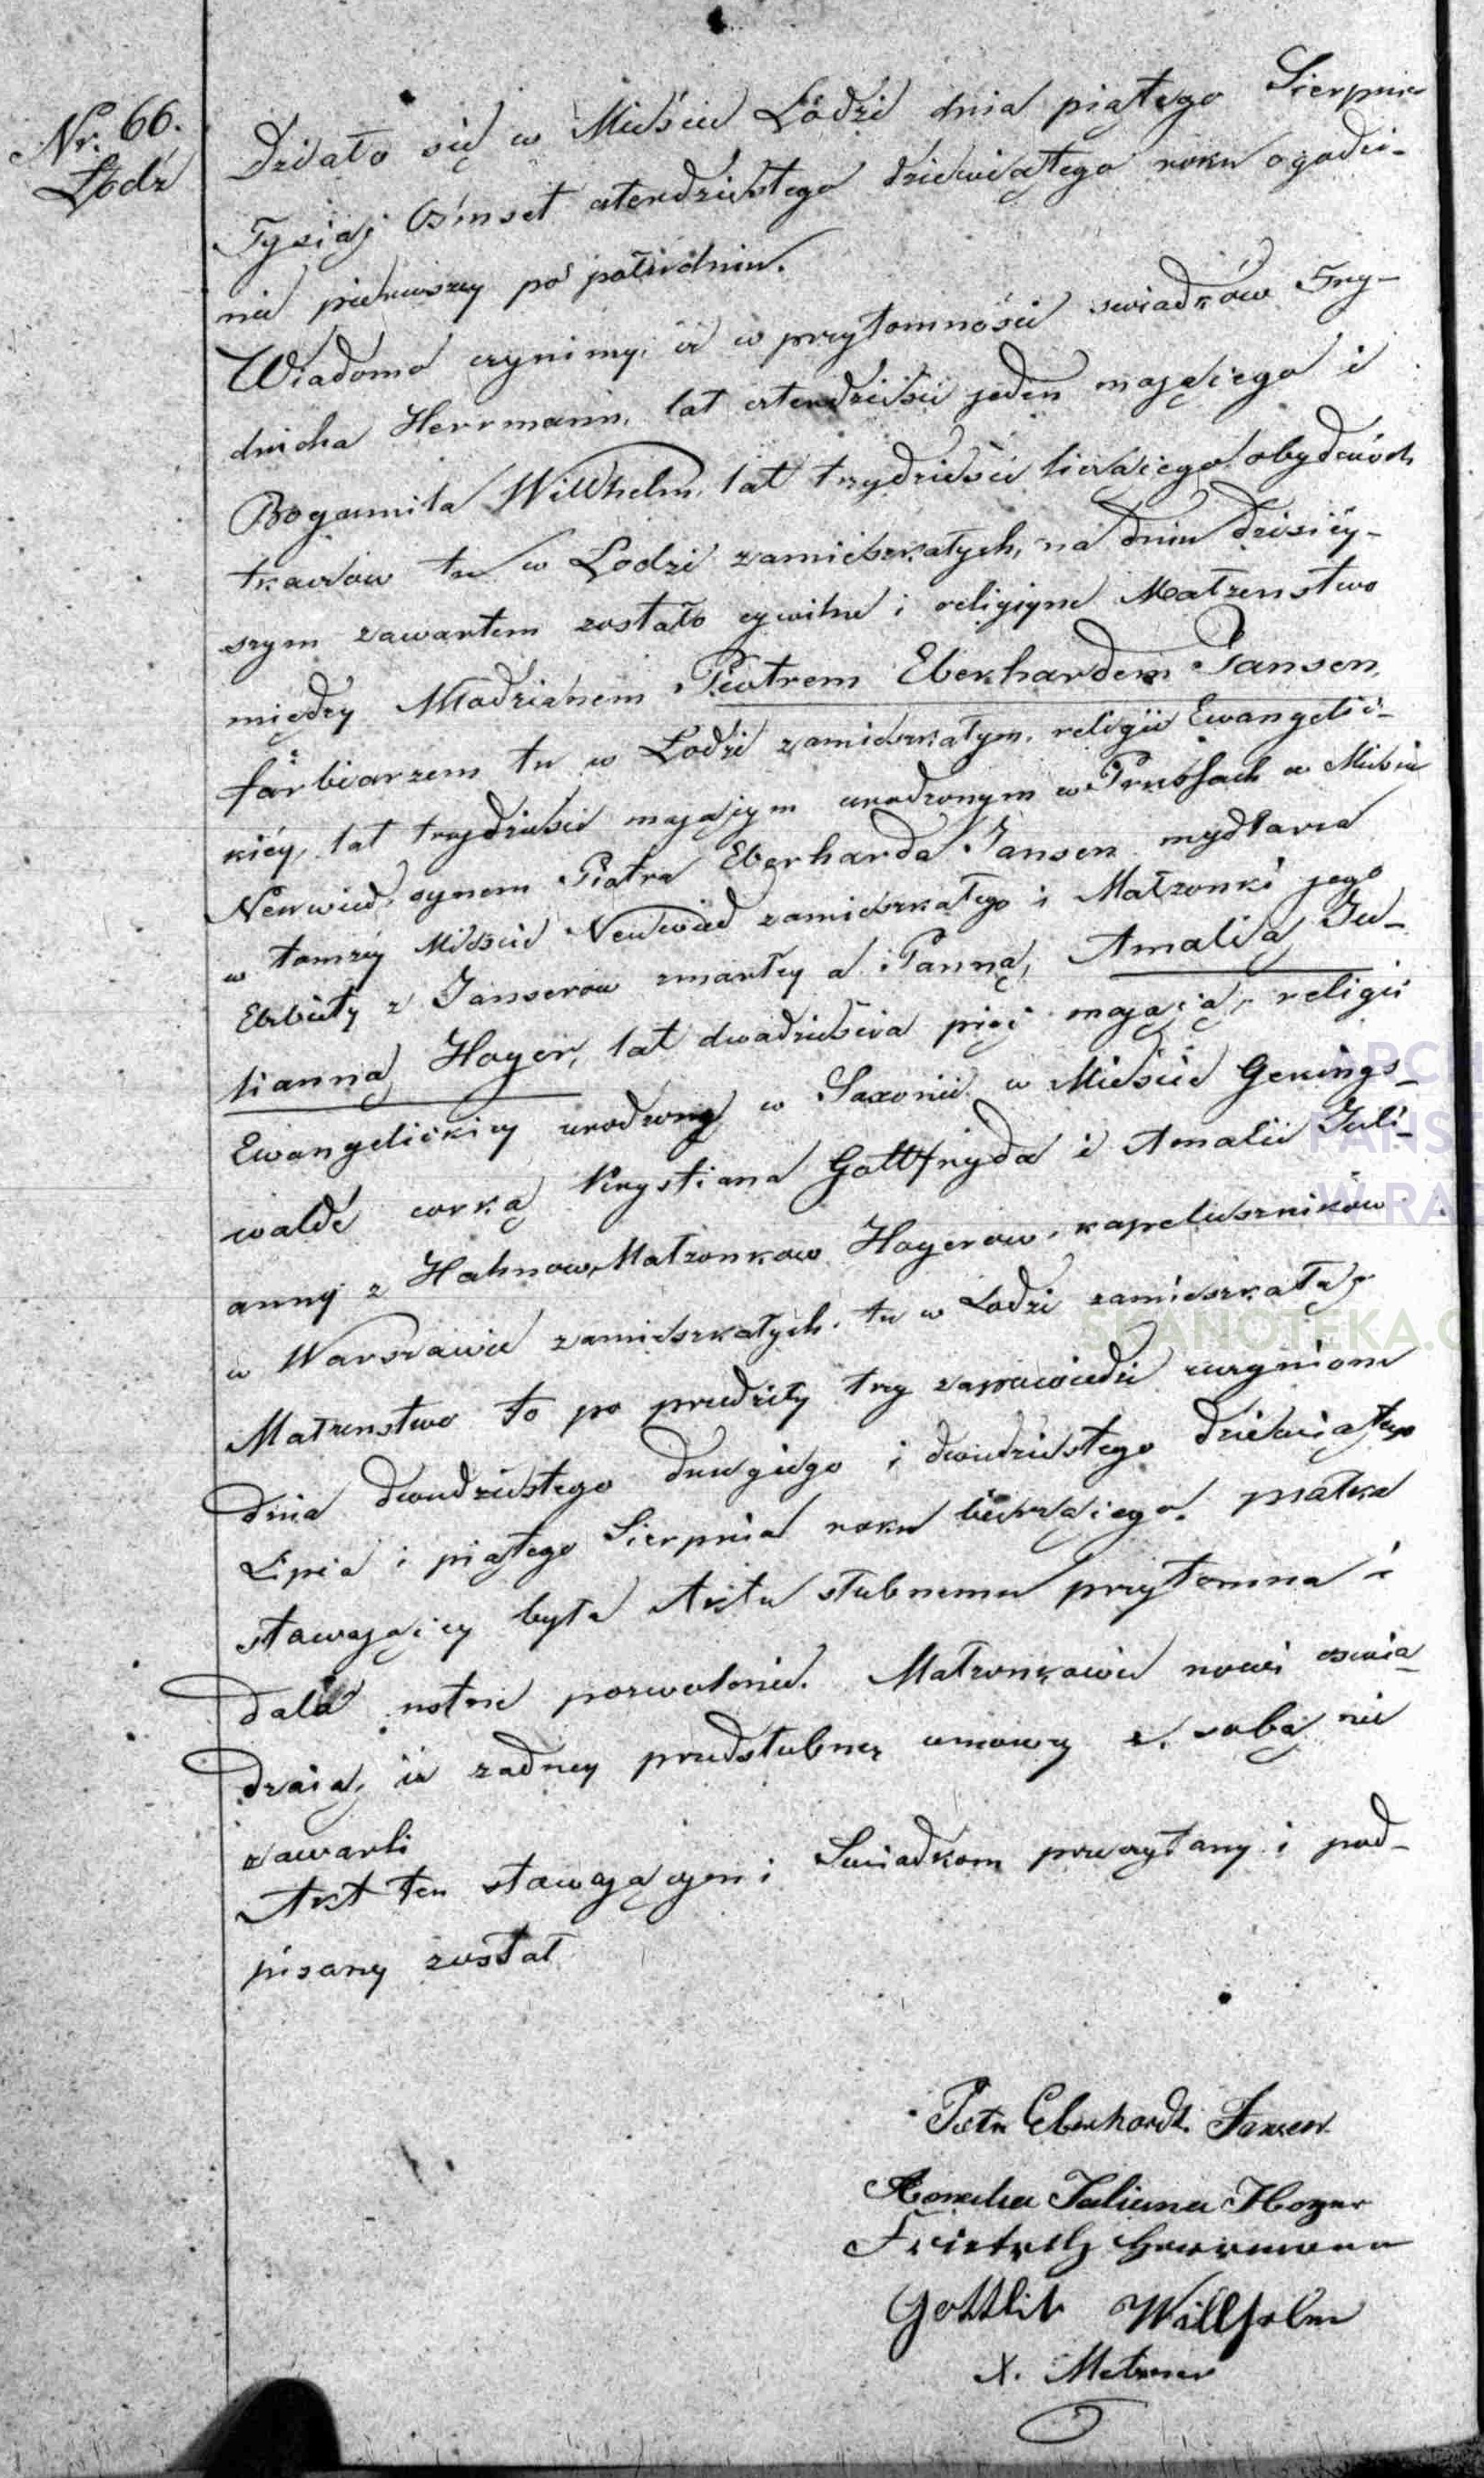 Nr. 66.
Łódź
Działo się w Mieście Łodzi dnia piątego Sierpnia
Tysiąc Ośmset czterdziestego dziewiątego roku o godzi-
nie pierwszey po południu.
Wiadomo czynimy, iż w przytomności swiadków Fry-
dricha Herrmann, lat czterdzieści jeden mającego i
Bogumiła Willhelm, lat trzydzieści liczącego obydwóch
tkaczów tu w Łodzi zamieszkałych, na dniu dzisiéy-
szym zawartem zostało cywilne i religiyne Małżenstwo
między Młodzianem Piotrem Eberhardem Jansen,
farbiarzem tu w Łodzi zamieszkałym, religii Ewangelic-
kiéy, lat trzydzieści mającym urodzonym w Prussach w Mieście
Neuwied, synem Piotra Eberharda Jansen mydlarza
w tomzey Mieście Neuwied zamieszkałego i Małzonki jego
Elzbiety z Janserow zmarłey a Panną, Amalią Ju-
lianną Hoyer, lat dwadzieścia pięć mającą, religii
Ewangelickiey urodzoną w Saxonii w Mieście Gerings-
walde corką Krystiana Gottfryda i Amalii Juli-
anny z Hahnow, Małzonkow Hoyerow, kapeluszników
w Warszawie zamieszkałych, tu w Łodzi zamieszkałą,
Małzenstwo to po przedziły try zapowiedzie uczynione
dnia dwudziestego drugiego i dwudziestego dziewiątego
Lipca i piątego Sierpnia roku bieżącego. Matka
stawającey była Aktu slubnemu przytomna i
dała ustne pozwolenie. Małzonkowie nowi oswia-
dzaią, iż zadney przedslubney umowy z sobą nie
zawarli
Akt ten stawającym i Swiadkom przeczytany i pod-
pisany został
Piotr Eberhardt Jansen
Amalia Juliana Hoyer
Friedrich Herrmann
Gottlib Willhelm
X. Metzner
ARCH
PAŃS
W RA
SKANOTEKA.G